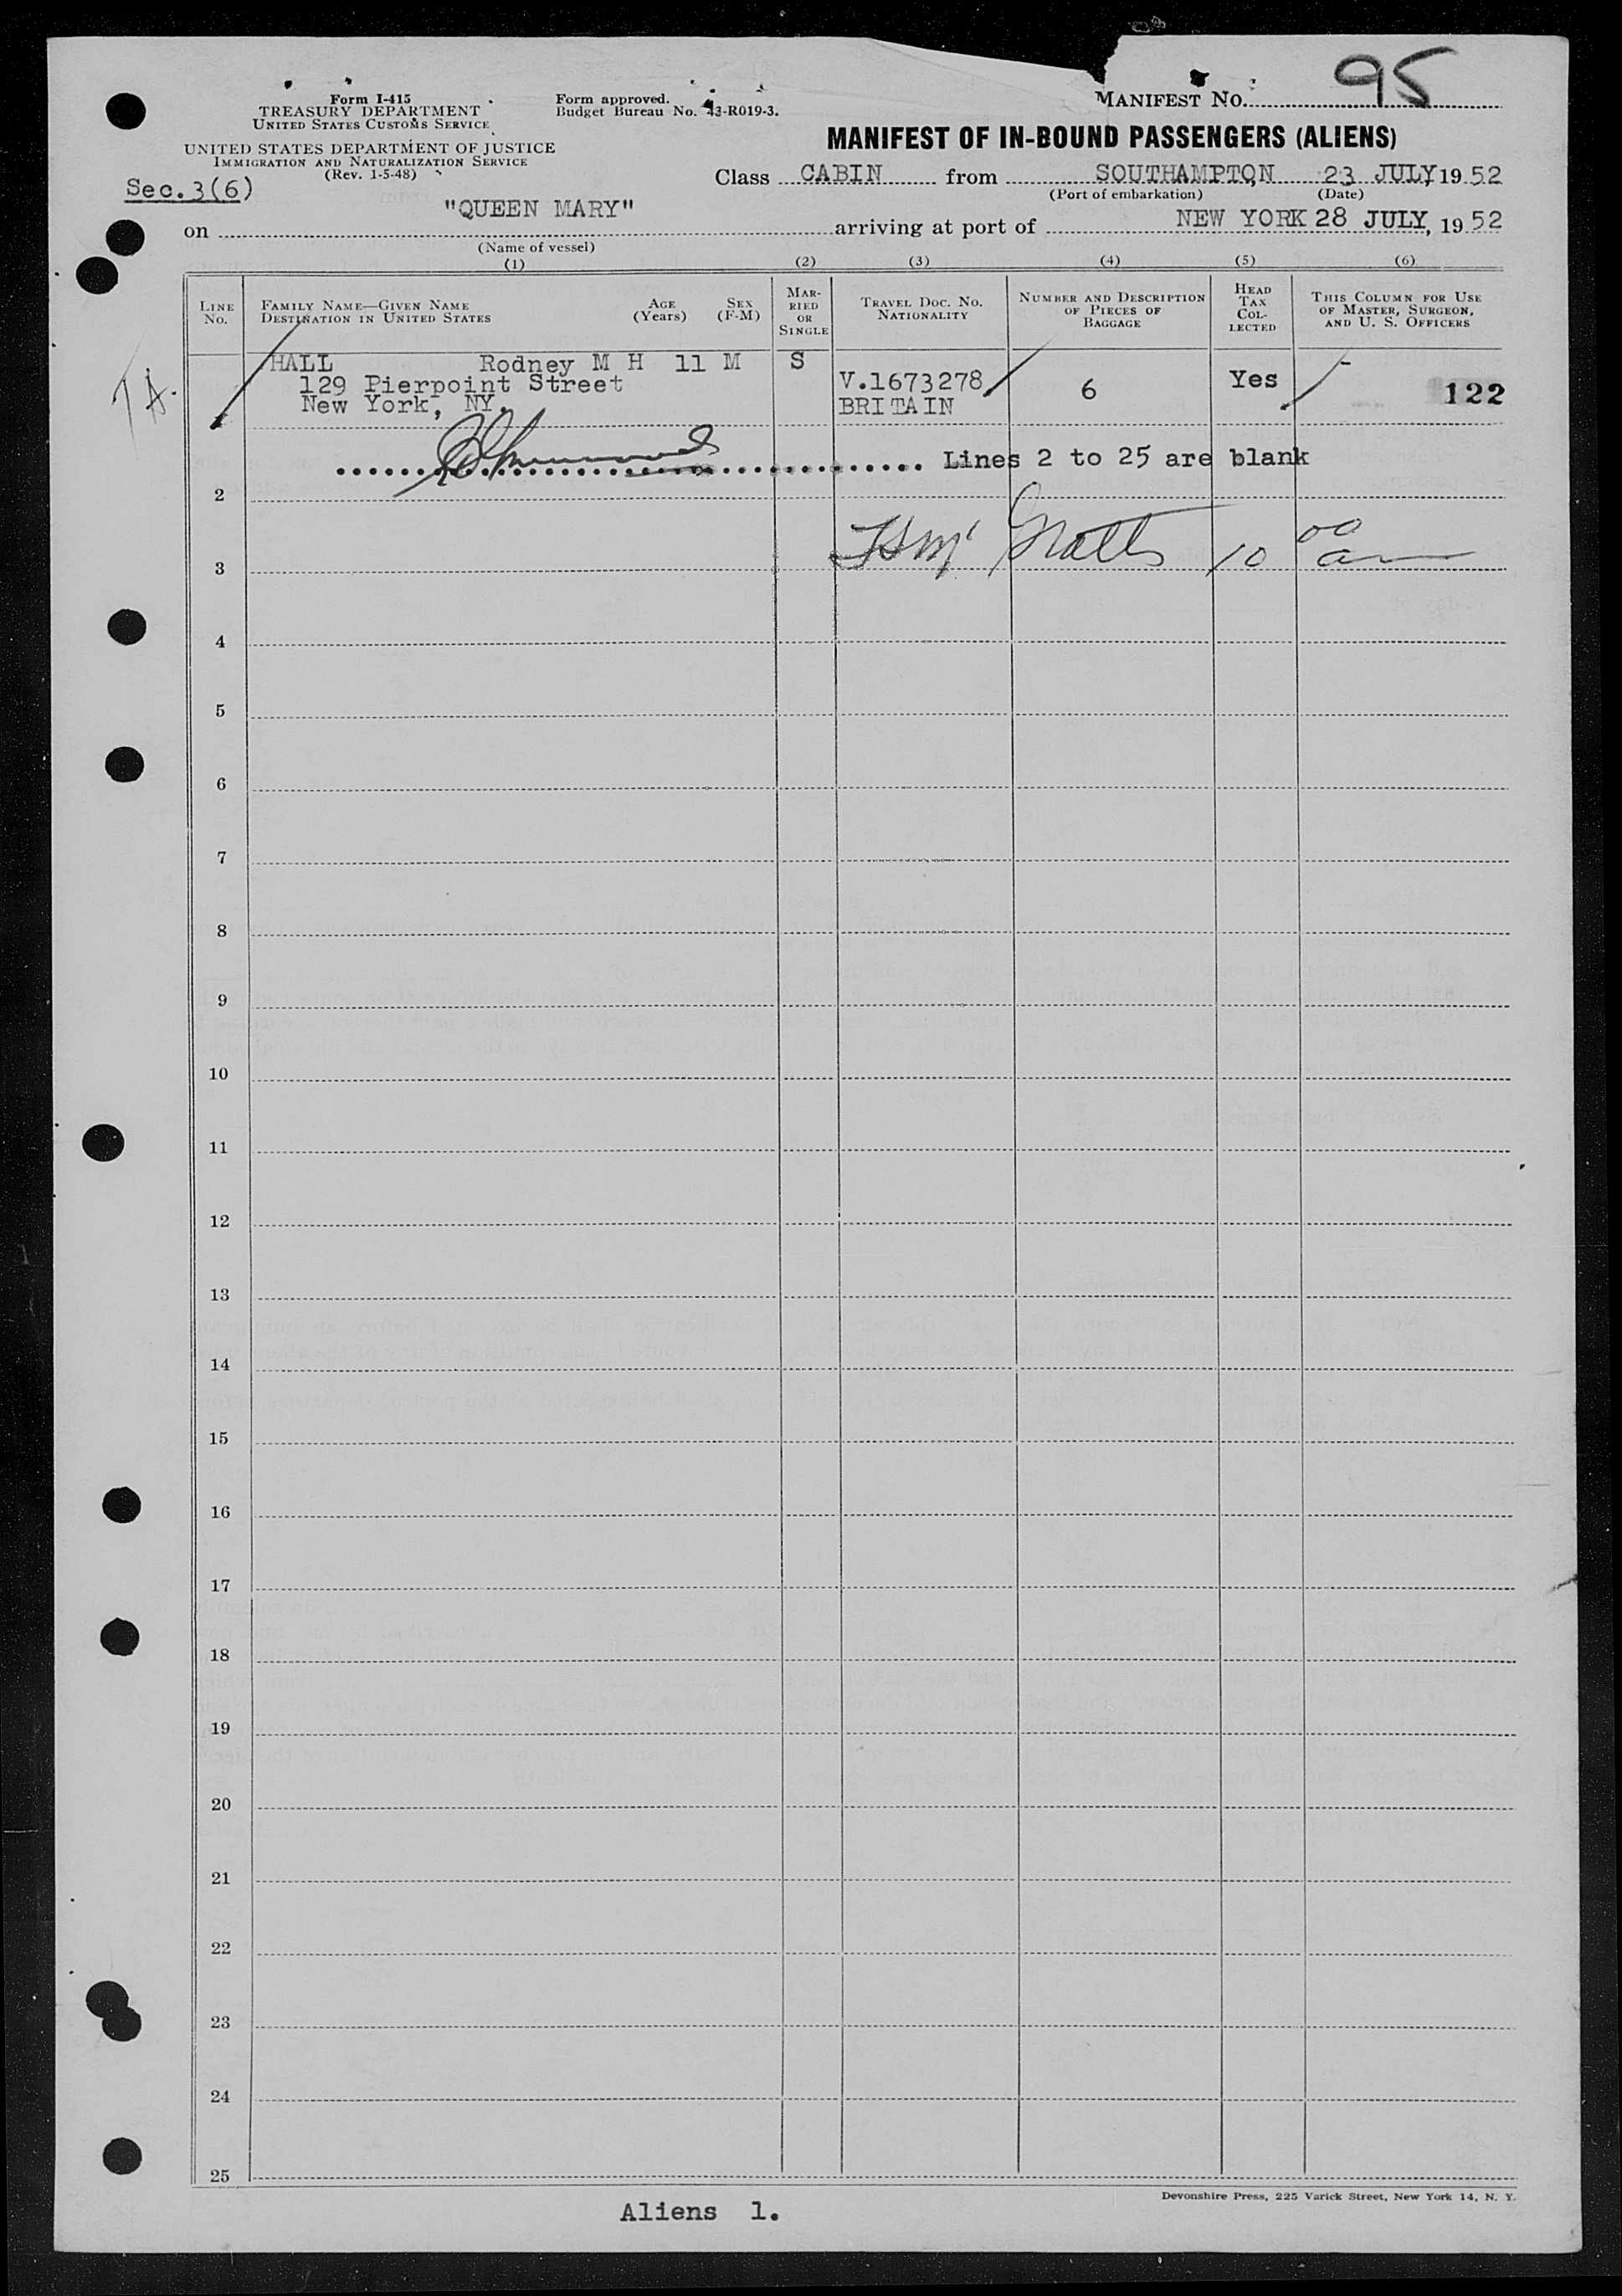 Form I-415
TREASURY DEPARTMENT
UNITED STATES CUSTOMS SERVICE
UNITED STATES DEPARTMENT OF JUSTICE
IMMIGRATION AND NATURALIZATION SERVICE
(Rev. 1-5-48)
Sec.3(6)
Form approved.
Budget Bureau No. 43-R019-3.
MANIFEST NO. 95
MANIFEST OF IN-BOUND PASSENGERS (ALIENS)
Class CABIN from SOUTHAMPTON 23 JULY 19 52
(Port of embarkation) (Date)
on "QUEEN MARY" arriving at port of NEW YORK 28 JULY, 19 52
(Name of vessel)
(1) (2) (3) (4) (5) (6)
LINE NO.
FAMILY NAME—GIVEN NAME
DESTINATION IN UNITED STATES
AGE (Years)
SEX (F-M)
MARRIED OR SINGLE
TRAVEL DOC. NO.
NATIONALITY
NUMBER AND DESCRIPTION
OF PIECES OF
BAGGAGE
HEAD
TAX
COL-
LECTED
THIS COLUMN FOR USE
OF MASTER, SURGEON,
AND U. S. OFFICERS
HALL Rodney M H 11 M S
129 Pierpoint Street
New York, NY.
V.1673278
BRITAIN
6
Yes
122
Lines 2 to 25 are blank
2
10 00
3
4
5
6
7
8
9
10
11
12
13
14
15
16
17
18
19
20
21
22
23
24
25
Devonshire Press, 225 Varick Street, New York 14, N. Y.
Aliens 1.